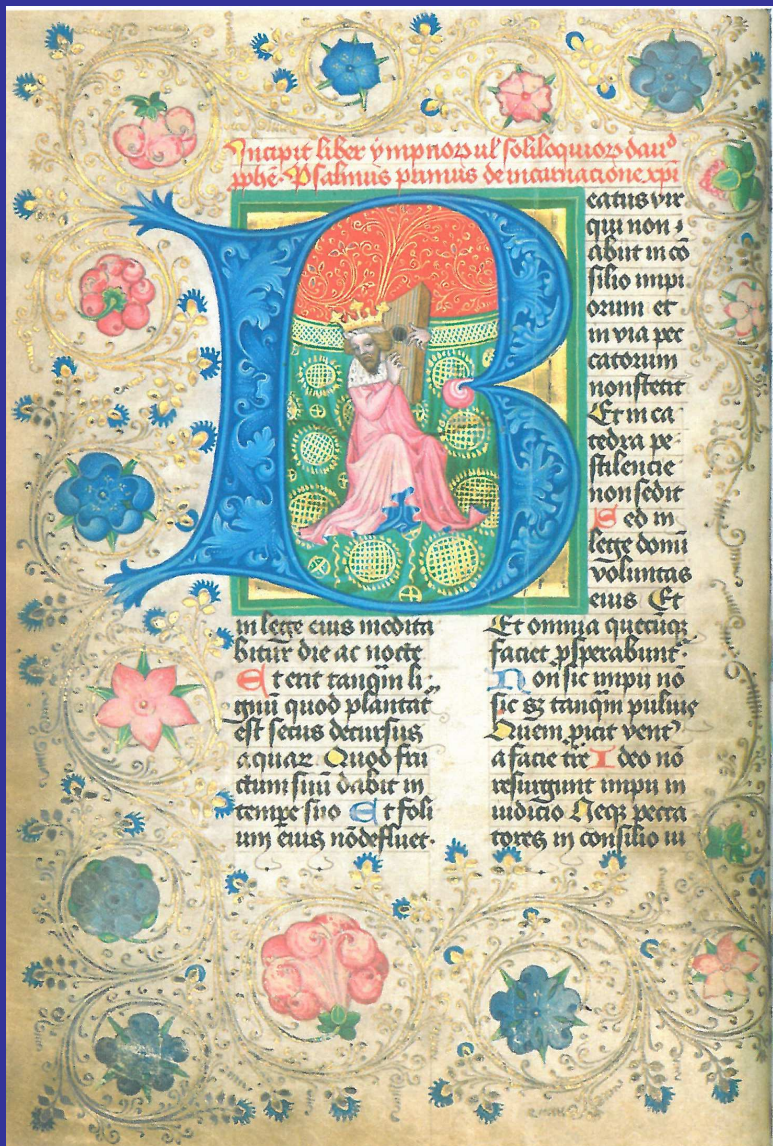 Incipit liber ympnoꝝ ul' soliloquioꝝ dauid
pphē· Psalmus primus de incarnacione xpi
B
eatus vir
qui non
abiit in cō
silio impi
orum et
in via pec
catorum
non stetit
Et in ca
tedra pe
stilencie
non sedit
Sed in
lege domi
voluntas
eius Et
in lege eius medita
bitur die ac nocte
Et erit tanqm li
gnū quod plantat
est secus decursus
aquaꝝ Quod fru
ctum suū dabit in
tempe suo Et foli
um eius nō defluet·
Et omnia quecūqꝫ
faciet psperabunt·
Non sic impii nō
sic sꝫ tanqm puluis
Quem picit vent'
a facie tre Ideo nō
resurgunt impii in
iudicio Neqꝫ pecca
tores in consilio iu